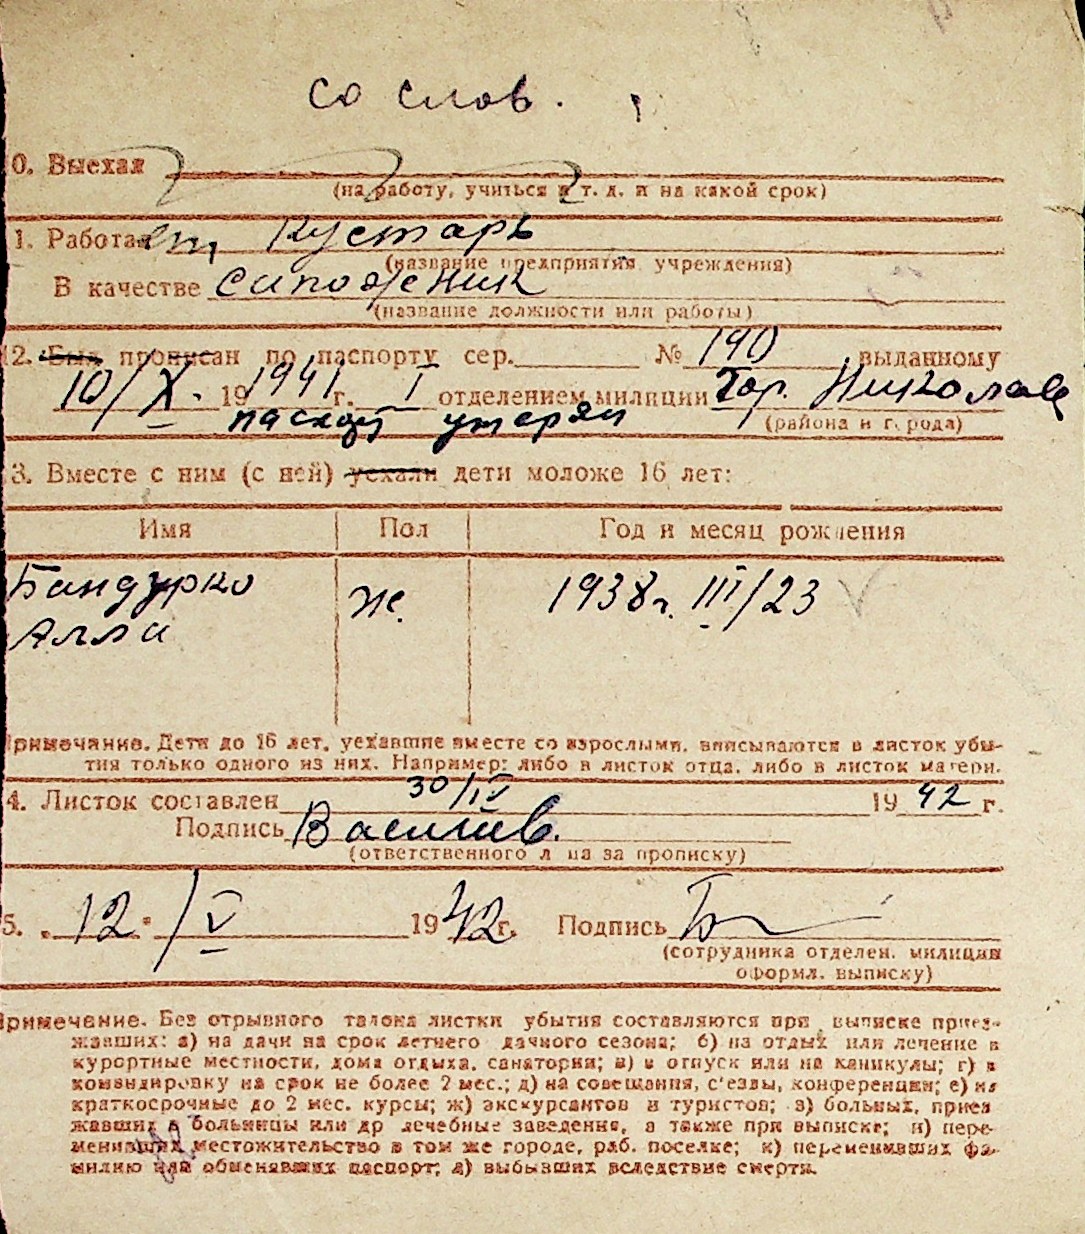 со слов.
0. Выехал
(на работу, учиться и т. д. и на какой срок)
1. Работает, кустарь
(название предприятия учреждения)
В качестве сапожник
(название должности или работы)
2. Был прописан по паспорту сер. № 190 выданному
10/X. 1941 г. I отделением милиции Гор. Николаев
паспорт утерян (района и города)
3. Вместе с ним (с ней) уехали дети моложе 16 лет:
Имя Пол Год и месяц рождения
Бандурко ж. 1938 г. III/23
Алла
Примечание. Дети до 16 лет, уехавшие вместе со взрослыми, вписываются в листок убы-
тия только одного из них. Например: либо в листок отца, либо в листок матери.
4. Листок составлен 30/IV 1942 г.
Подпись
(ответственного лица за прописку)
5. 12 /V 1942 г. Подпись
(сотрудника отделен. милиции
оформл. выписку)
Примечение. Без отрывного талона листки убытия составляются при выписке приез-
жавших: а) на дачи на срок летнего дачного сезона; б) на отдых или лечение в
курортные местности, дома отдыха, санатории; в) в отпуск или на каникулы; г) в
командировку на срок не более 2 мес.; д) на совещания, с'езды, конференции; е) на
краткосрочные до 2 мес. курсы; ж) экскурсантов и туристов; з) больных, приез
жавших в больницы или др лечебные заведения, а также при выписке; и) пере-
менивших местожительство в том же городе, раб. поселке; к) переменивших фа-
милию или обменявших паспорт; л) выбывших вследствие смерти.